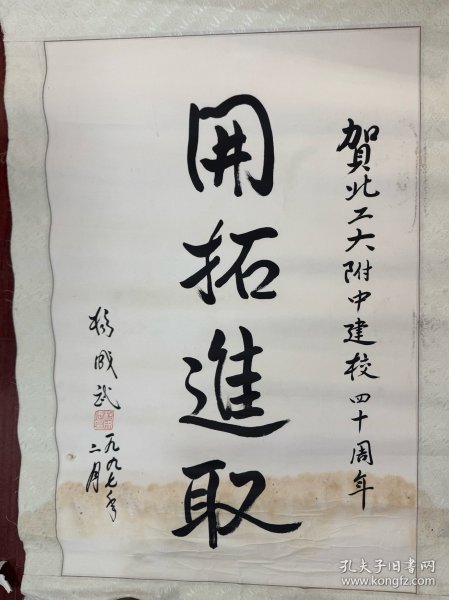 賀北工大附中建校四十周年
開拓進取
楊成武
一九九七年
二月
孔夫子旧书网
www.kongfz.com